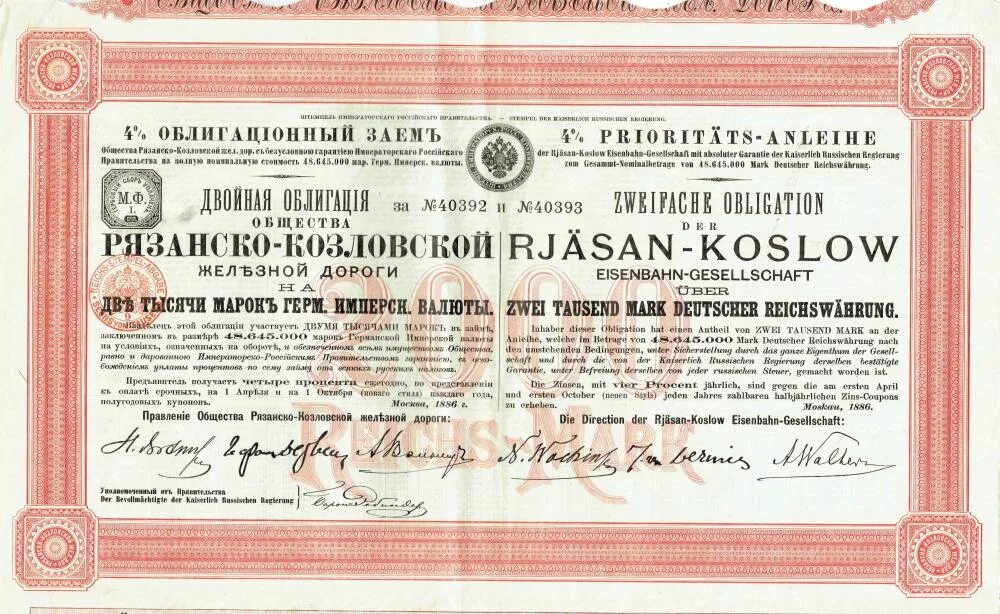 ШТЕМПЕЛЬ ИМПЕРАТОРСКАГО РОССІЙСКАГО ПРАВИТЕЛЬСТВА. — STEMPEL DER KAISERLICH RUSSISCHEN REGIERUNG.
4% ОБЛИГАЦІОННЫЙ ЗАЕМЪ
Общества Рязанско-Козловской жел. дор. съ безусловною гарантіею Императорскаго Россійскаго
Правительства на полную номинальную стоимость 48.645.000 мар. Герм. Имперск. валюты.
М.Ф.
I.
ДВОЙНАЯ ОБЛИГАЦІЯ за №40392 и №40393
ОБЩЕСТВА
РЯЗАНСКО-КОЗЛОВСКОЙ
ЖЕЛѢЗНОЙ ДОРОГИ
НА
ДВѢ ТЫСЯЧИ МАРОКЪ ГЕРМ. ИМПЕРСК. ВАЛЮТЫ.
Владѣлецъ этой облигаціи участвуетъ ДВУМЯ ТЫСЯЧАМИ МАРОКЪ въ займѣ,
заключенномъ въ размѣрѣ 48.645.000 марокъ Германской Имперской валюты
на условіяхъ, означенныхъ на оборотѣ, и обезпеченномъ всѣмъ имуществомъ Общества,
равно и дарованною Императорско-Россійскимъ Правительствомъ гарантіею, съ осво-
божденіемъ уплаты процентовъ по сему займу отъ всякихъ русскихъ налоговъ.
Предъявитель получаетъ четыре процента ежегодно, по представленіи
къ оплатѣ срочныхъ, на 1 Апрѣля и на 1 Октября (новаго стиля) каждаго года,
полугодовыхъ купоновъ. Москва, 1886 г.
Правленіе Общества Рязанско-Козловской желѣзной дороги:
Уполномоченный отъ Правительства
Der Bevollmächtigte der Kaiserlich Russischen Regierung
4% PRIORITÄTS-ANLEIHE
der Rjäsan-Koslow Eisenbahn-Gesellschaft mit absoluter Garantie der Kaiserlich Russischen Regierung
zum Gesammt-Nominalbetrage von 48.645.000 Mark Deutscher Reichswährung.
ZWEIFACHE OBLIGATION
DER
RJÄSAN-KOSLOW
EISENBAHN-GESELLSCHAFT
ÜBER
ZWEI TAUSEND MARK DEUTSCHER REICHSWÄHRUNG.
Inhaber dieser Obligation hat einen Antheil von ZWEI TAUSEND MARK an der
Anleihe, welche im Betrage von 48.645.000 Mark Deutscher Reichswährung nach
den umstehenden Bedingungen, unter Sicherstellung durch das ganze Eigenthum der Gesell-
schaft und durch die von der Kaiserlich Russischen Regierung derselben bestätigte
Garantie, unter Befreiung derselben von jeder russischen Steuer, gemacht worden ist.
Die Zinsen, mit vier Procent jährlich, sind gegen die am ersten April
und ersten October (neuen Styls) jeden Jahres zahlbaren halbjährlichen Zins-Coupons
zu erheben. Moskau, 1886.
Die Direction der Rjäsan-Koslow Eisenbahn-Gesellschaft:
A Waltern
2000
REICHS-MARK